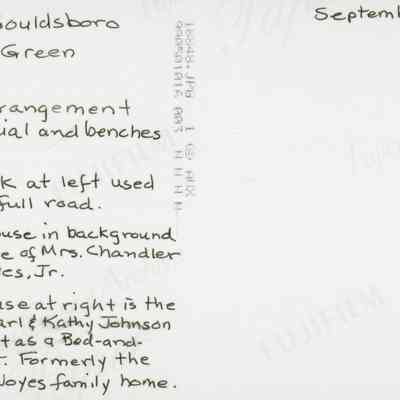 ouldsboro
Green
Septemb
rangement
ial and benches
k at left used
full road.
ouse in background
e of Mrs. Chandler
es, Jr.
use at right is the
arl & Kathy Johnson
t as a Bed-and-
. Formerly the
Noyes family home.
FUJIFILM